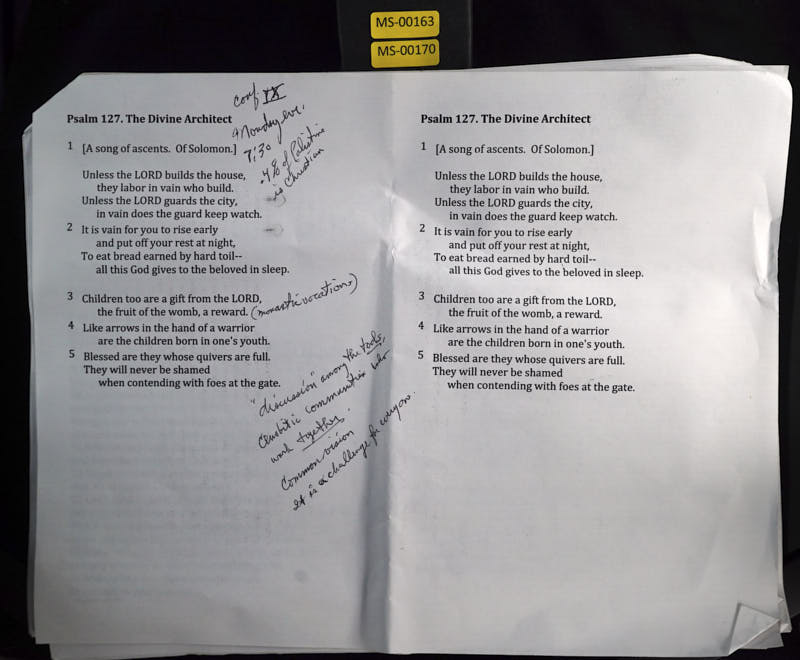 MS-00163
MS-00170
conf. IX
Monday eve.
7:30
.4% of Palestine
is Christian
Psalm 127. The Divine Architect
1 [A song of ascents.  Of Solomon.]
Unless the LORD builds the house,
they labor in vain who build.
Unless the LORD guards the city,
in vain does the guard keep watch.
2 It is vain for you to rise early
and put off your rest at night,
To eat bread earned by hard toil--
all this God gives to the beloved in sleep.
3 Children too are a gift from the LORD,
the fruit of the womb, a reward. (monastic vocations)
4 Like arrows in the hand of a warrior
are the children born in one's youth.
5 Blessed are they whose quivers are full.
They will never be shamed
when contending with foes at the gate.
"discussion" among the tools,
Cenobitic communities who
work together.
Common vision
It is a challenge for everyone.
Psalm 127. The Divine Architect
1 [A song of ascents.  Of Solomon.]
Unless the LORD builds the house,
they labor in vain who build.
Unless the LORD guards the city,
in vain does the guard keep watch.
2 It is vain for you to rise early
and put off your rest at night,
To eat bread earned by hard toil--
all this God gives to the beloved in sleep.
3 Children too are a gift from the LORD,
the fruit of the womb, a reward.
4 Like arrows in the hand of a warrior
are the children born in one's youth.
5 Blessed are they whose quivers are full.
They will never be shamed
when contending with foes at the gate.